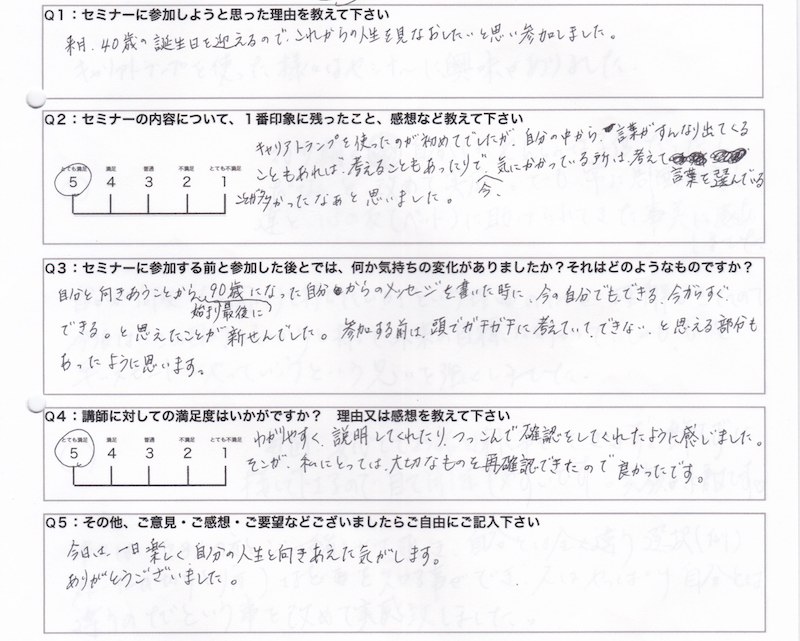 Q1：セミナーに参加しようと思った理由を教えて下さい
来月、40歳の誕生日を迎えるので、これからの人生を見なおしたいと思い参加しました。
Q2：セミナーの内容について、1番印象に残ったこと、感想など教えて下さい
とても満足 満足 普通 不満足 とても不満足
5 4 3 2 1
キャリアトランプを使ったのが初めてでしたが、自分の中から、言葉がすんなり出てくる
こともあれば、考えることもあったりで、今、気にかかっている所は、考えて言葉を選んでいる
ことが多かったなぁと思いました。
Q3：セミナーに参加する前と参加した後とでは、何か気持ちの変化がありましたか？それはどのようなものですか？
自分と向きあうことから始まり、最後に90歳になった自分からのメッセージを書いた時に、今の自分でもできる、今からすぐ
できる。と思えたことが新せんでした。参加する前は、頭でガチガチに考えていて、できない、と思える部分も
あったように思います。
Q4：講師に対しての満足度はいかがですか？ 理由又は感想を教えて下さい
とても満足 満足 普通 不満足 とても不満足
5 4 3 2 1
わかりやすく、説明してくれたり、つっこんで確認をしてくれたように感じました。
そこが、私にとっては、大切なものを再確認できたので良かったです。
Q5：その他、ご意見・ご感想・ご要望などございましたらご自由にご記入下さい
今日は、一日楽しく、自分の人生と向きあえた気がします。
ありがとうございました。